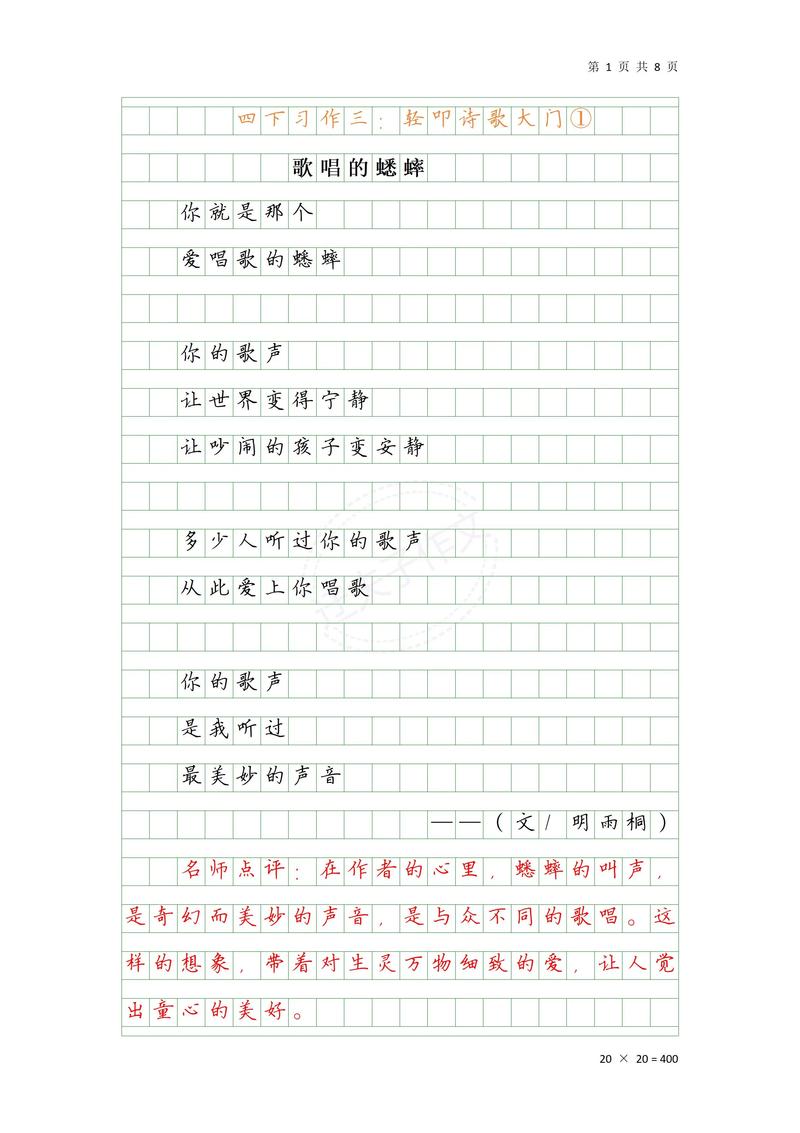 第 1 页 共 8 页
四下习作三：轻叩诗歌大门①
歌唱的蟋蟀
你就是那个
爱唱歌的蟋蟀
你的歌声
让世界变得宁静
让吵闹的孩子变安静
多少人听过你的歌声
从此爱上你唱歌
你的歌声
是我听过
最美妙的声音
——（文/ 明雨桐）
名师点评：在作者的心里，蟋蟀的叫声，
是奇幻而美妙的声音，是与众不同的歌唱。这
样的想象，带着对生灵万物细致的爱，让人觉
出童心的美好。
20 × 20 = 400